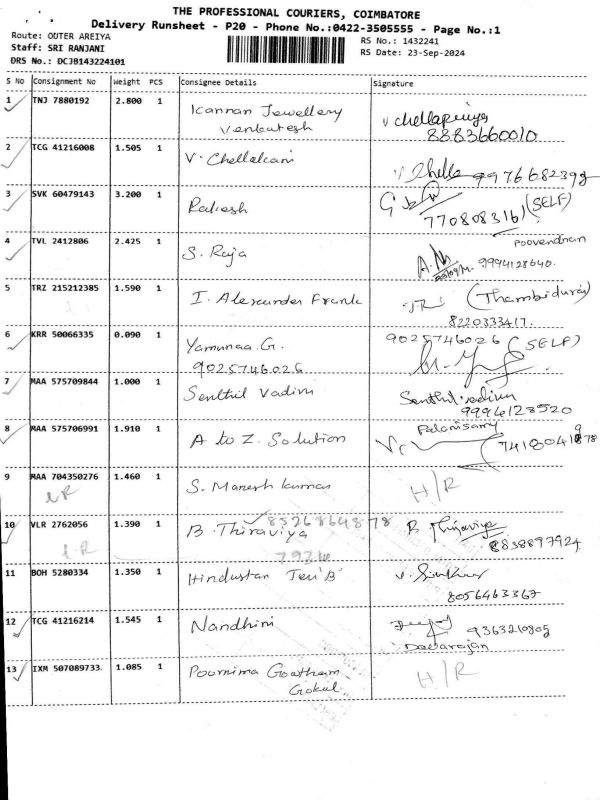 THE PROFESSIONAL COURIERS, COIMBATORE
Delivery Runsheet - P20 - Phone No.:0422-3505555 - Page No.:1
Route: OUTER AREIYA
RS No.: 1432241
Staff: SRI RANJANI
RS Date: 23-Sep-2024
DRS No.: DCJB143224101
S No Consignment No Weight PCS Consignee Details Signature
1 TNJ 7880192 2.800 1 Kannan Jewellery v chellapriya
Venkatesh 8883660010
2 TCG 41216008 1.505 1 V. Chellakani
V Chella 9976682398
3 SVK 60479143 3.200 1 Rakesh (SELF)
7708083161
4 TVL 2412806 2.425 1 S. Raja Poovendran
9994128640.
5 TRZ 215212385 1.590 1 I. Alexander Frank (Thambidurai)
8220333417.
6 KRR 50066335 0.090 1 Yamunaa.G. 9025746026 (SELF)
9025746026
7 MAA 575709844 1.000 1 Senthil Vadivu Senthil vadivu
9994128520
8 MAA 575706991 1.910 1 A to Z. Solution Palanisamy
9 MAA 704350276 1.460 1 S. Manesh kumar H/R
LR
10 VLR 2762056 1.390 1 8526864878
B. Thiraviya B Thiraviya
LR 8838897924
11 BOH 5280334 1.350 1 Hindustan
8056463367
12 TCG 41216214 1.545 1 Nandhini 9363210805
Devarajan
13 IXM 507089733 1.085 1 Poornima Gowtham H/R
Gokul